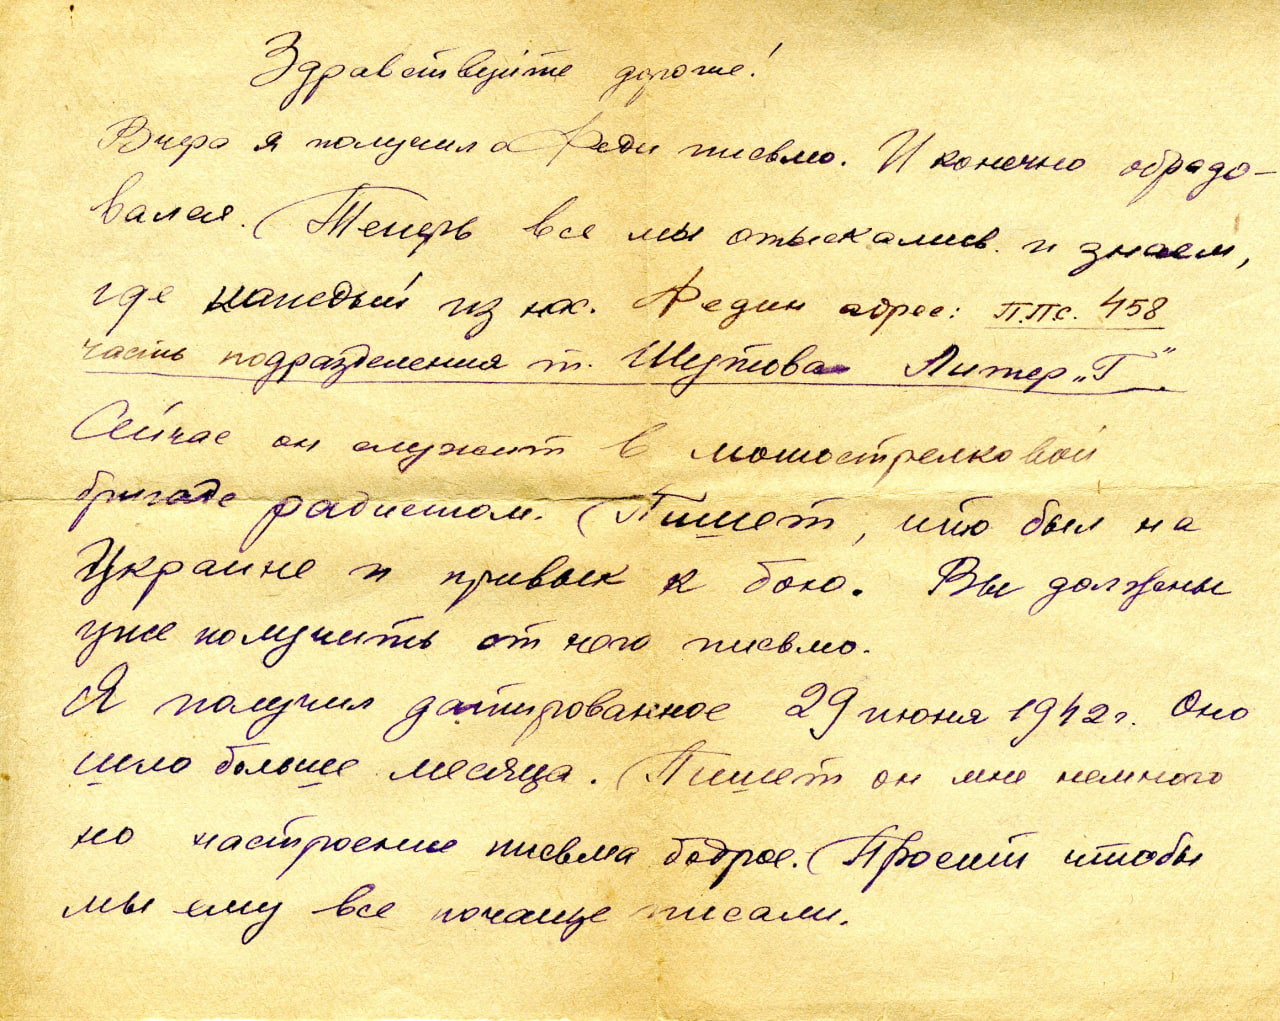 Здравствуйте дорогие!
Вчера я получил Феди письмо. И конечно обрадо-
вался. Теперь все мы отыскались и знаем,
где каждый из нас. Федин адрес: п.п.с. 458
часть подразделения т. Шутова Литер „Г".
Сейчас он служит в мотострелковой
бригаде радистом. Пишет, что был на
Украине и привык к бою. Вы должны
уже получить от него письмо.
Я получил датированное 29 июня 1942 г. Оно
шло больше месяца. Пишет он мне немного
но настроение письма бодрое. Просит чтобы
мы ему все почаще писали.